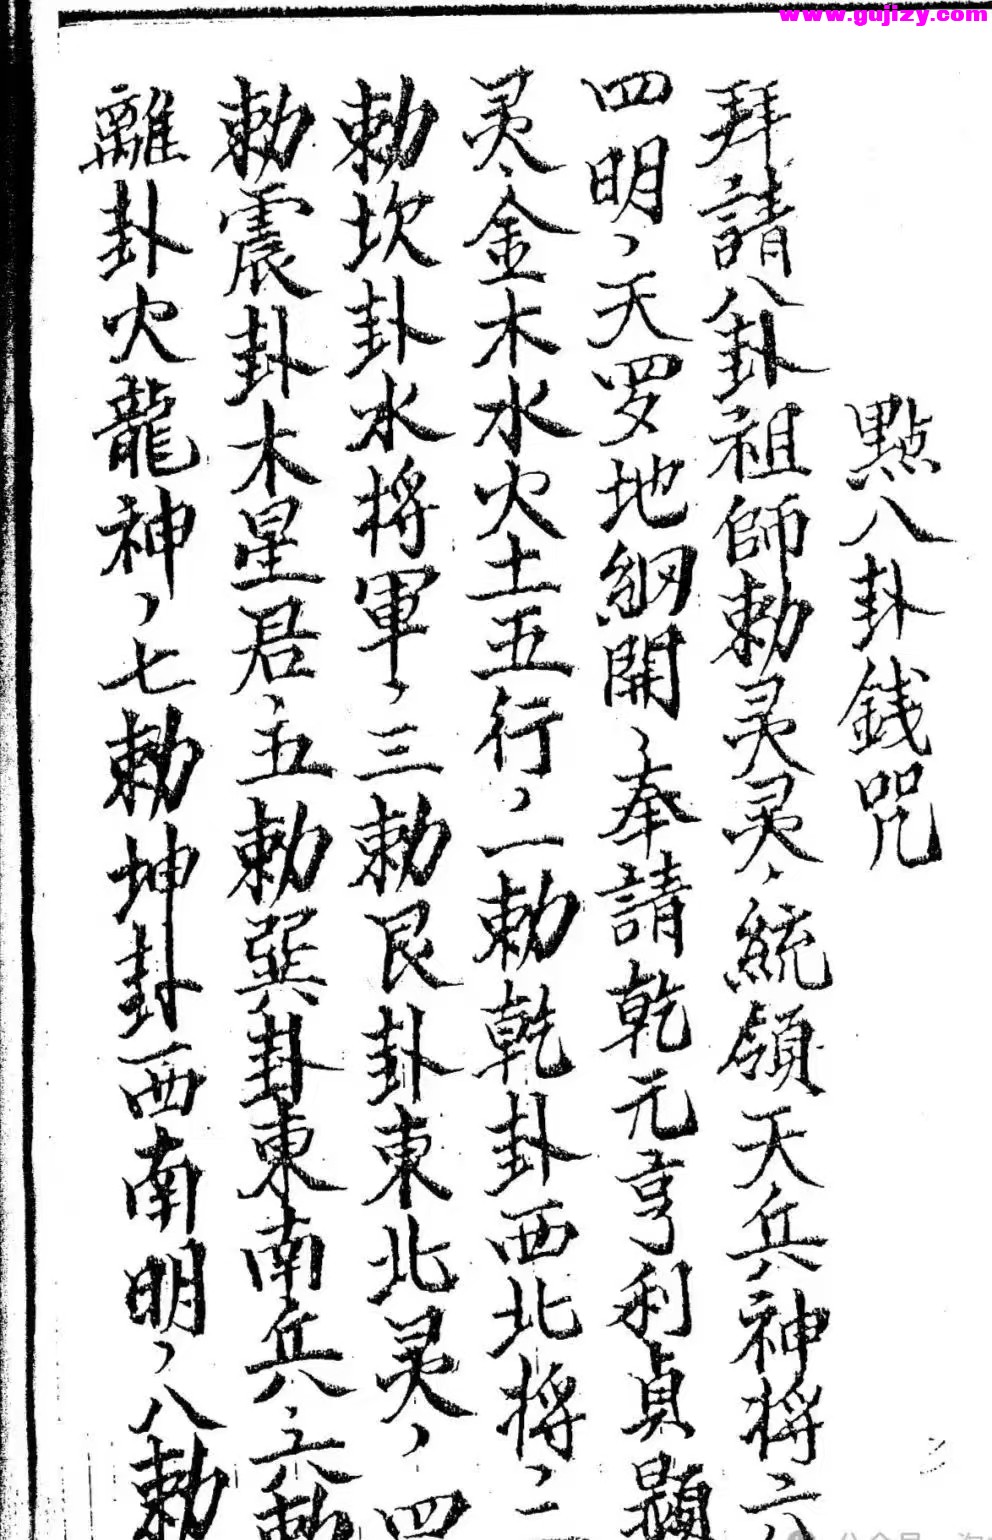 www.gujizy.com
點八卦銭咒
拜請八卦祖師勅灵灵、統領天兵神将二八
四明、天罗地網開、奉請乾元亨利貞顕
灵、金木水火土五行、一勅乾卦西北将、二
勅坎卦水将軍、三勅艮卦東北灵、四
勅震卦木星君、五勅巽卦東南兵、六勅
離卦火龍神、七勅坤卦西南明、八勅
公众号